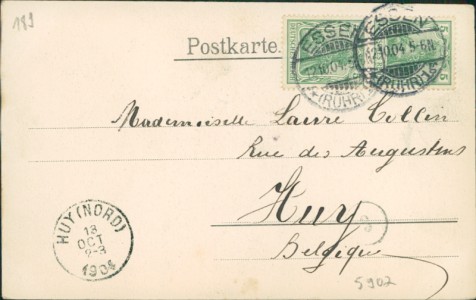 189
Postkarte.
ESSEN
12.10.04 5-6N.
*(RUHR)1s
ESSEN
12.10.04 5-6N.
*(RUHR)
5
Mademoiselle Laure Collin
Rue des Augustins
Huy
Belgique
HUY (NORD)
13
OCT
2-3
1904
5902